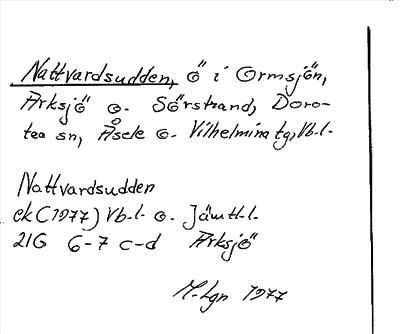 Nattvardsudden, ö i Ormsjön,
Arksjö o. Sörstrand, Doro-
tea sn, Åsele o. Vilhelmina tg, Vb.l.
Nattvardsudden
ek (1977) Vb.l. o. Jämtl.l.
21G 6-7 c-d Arksjö
M.Lgn 1977